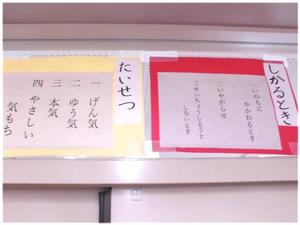 しかるとき
一いのちに
かかわるとき
二いやがらせ
三せいちょうしようと
しないとき
たいせつ
一 げん気
二 ゆう気
三 本気
四 やさしい
気もち